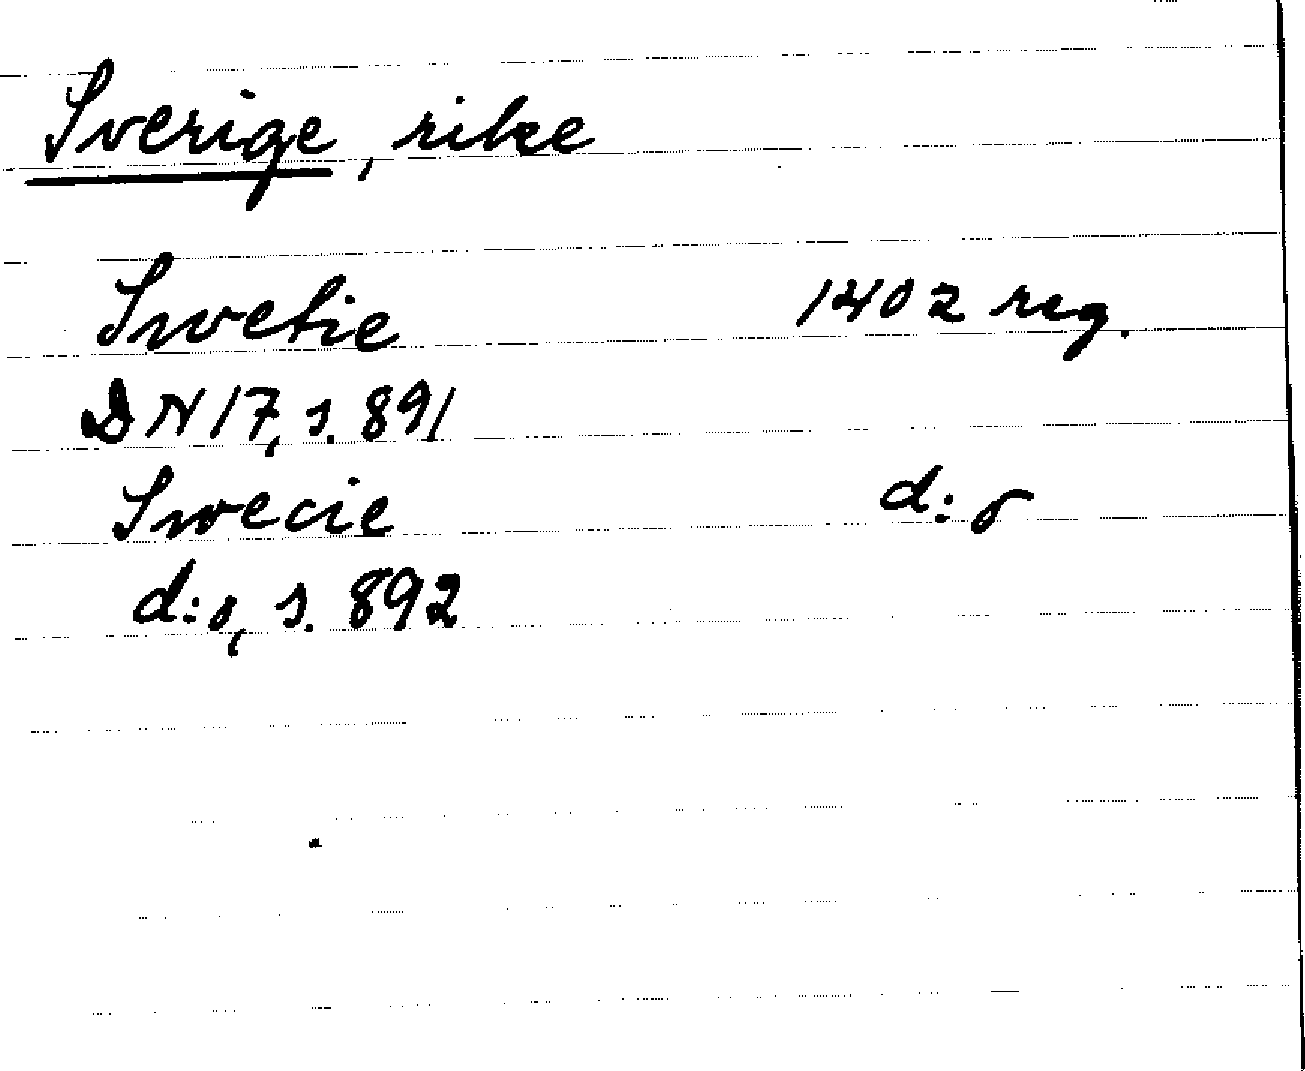 Sverige, rike
Swetie 1402 reg.
DN 17, s. 891
Swecie d:o
d:o, s. 892